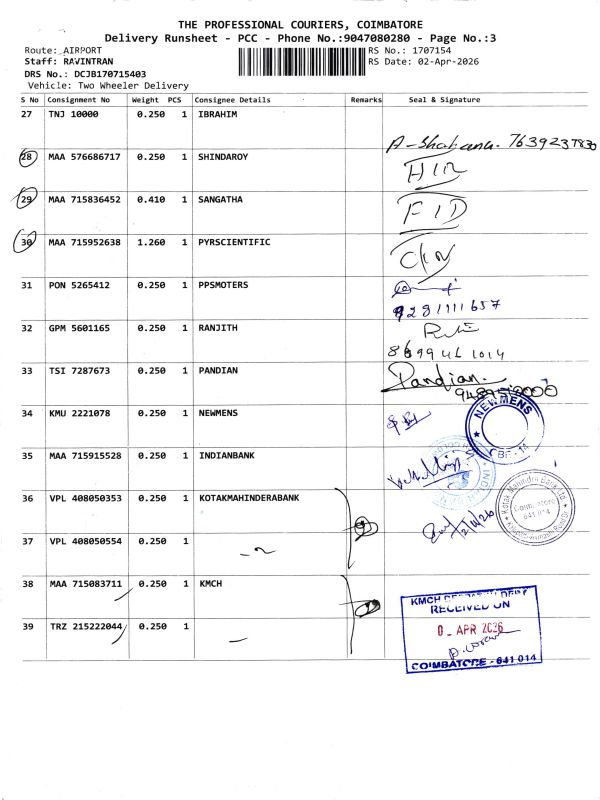 THE PROFESSIONAL COURIERS, COIMBATORE
Delivery Runsheet - PCC - Phone No.:9047080280 - Page No.:3
Route: AIRPORT
RS No.: 1707154
Staff: RAVINTRAN
RS Date: 02-Apr-2026
DRS No.: DCJB170715403
Vehicle: Two Wheeler Delivery
S No Consignment No Weight PCS Consignee Details Remarks Seal & Signature
27 TNJ 10000 0.250 1 IBRAHIM
A-Shabana. 7639237830
28 MAA 576686717 0.250 1 SHINDAROY
29 MAA 715836452 0.410 1 SANGATHA
30 MAA 715952638 1.260 1 PYRSCIENTIFIC
31 PON 5265412 0.250 1 PPSMOTERS
9281111657
32 GPM 5601165 0.250 1 RANJITH
8699461014
33 TSI 7287673 0.250 1 PANDIAN Pandian.
34 KMU 2221078 0.250 1 NEWMENS
NEWMENS
CBE-14
35 MAA 715915528 0.250 1 INDIANBANK
INDIAN BANK
36 VPL 408050353 0.250 1 KOTAKMAHINDERABANK
Kotak Mahindra Bank Ltd
Coimbatore
641 014
37 VPL 408050554 0.250 1
38 MAA 715083711 0.250 1 KMCH
KMCH
RECEIVED ON
APR 2026
COIMBATORE - 641 014
39 TRZ 215222044 0.250 1